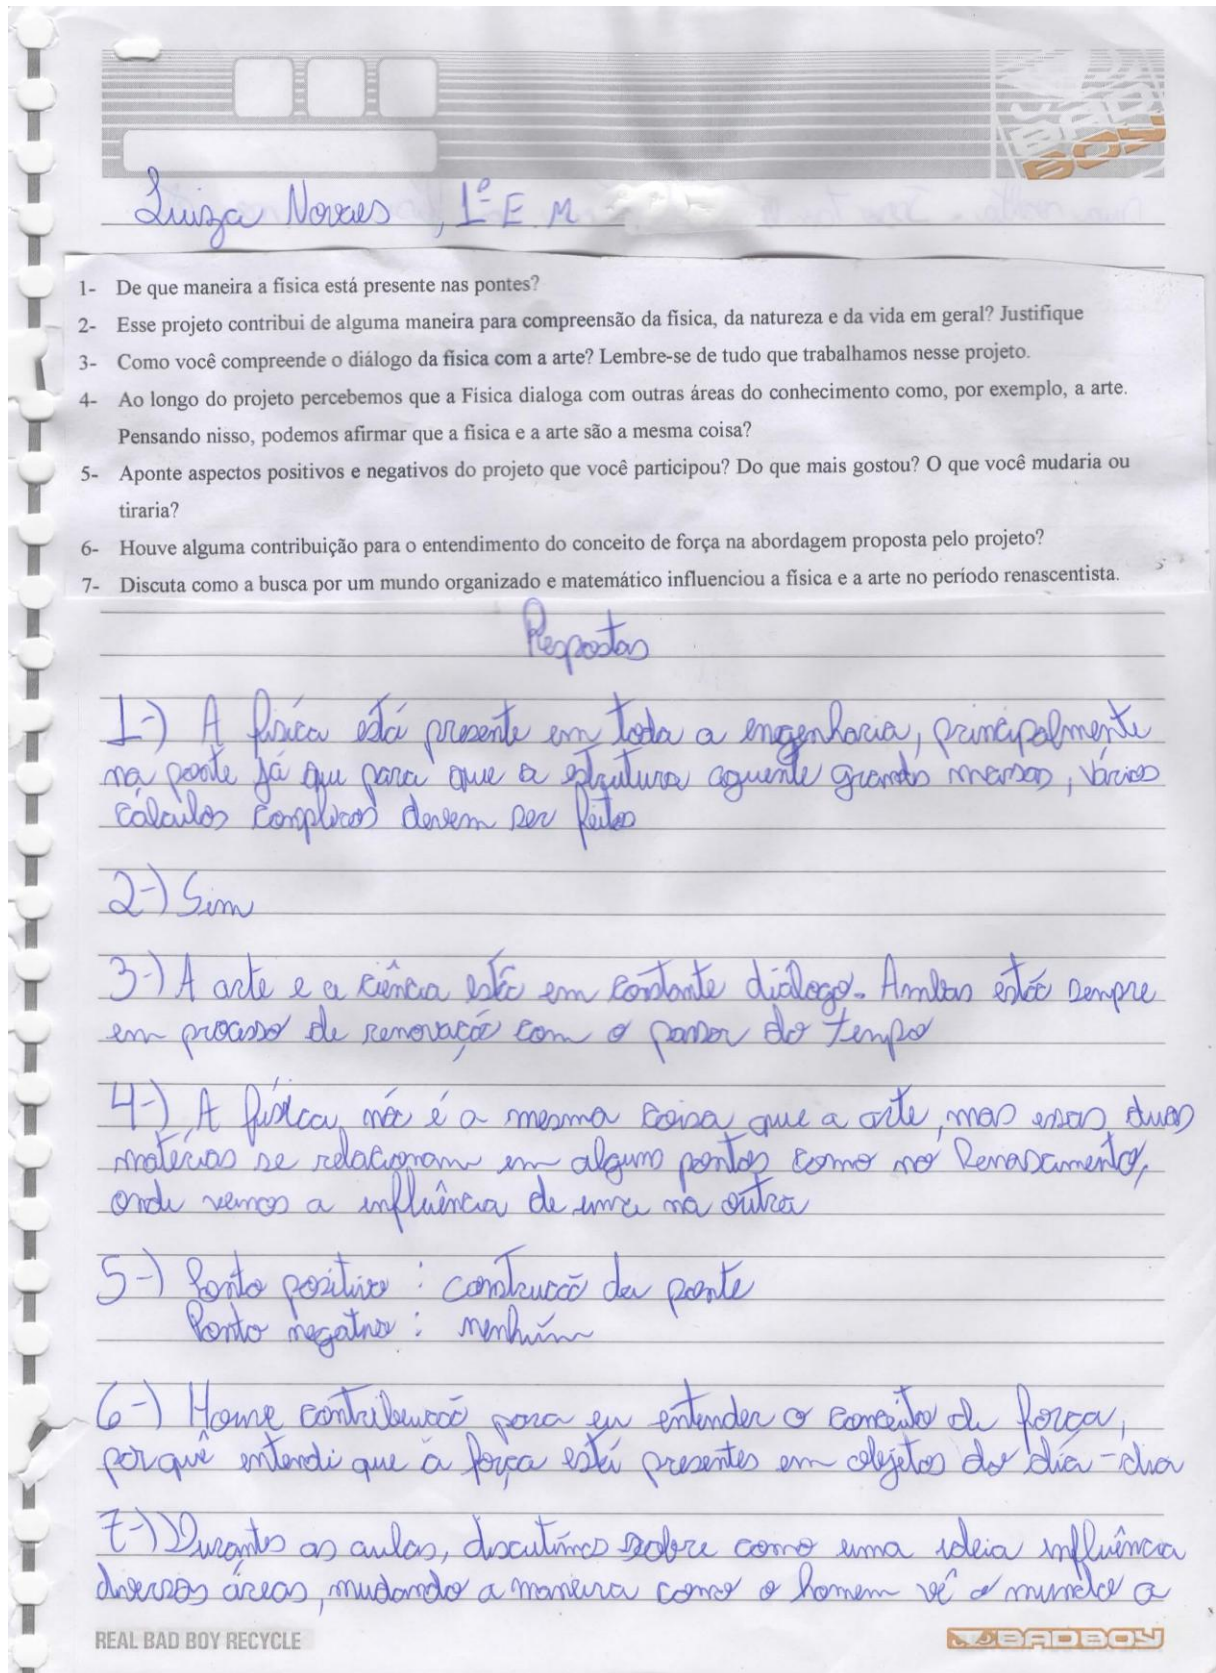 BAD BOY
Luiza Novaes, 1º E.M
1- De que maneira a física está presente nas pontes?
2- Esse projeto contribui de alguma maneira para compreensão da física, da natureza e da vida em geral? Justifique
3- Como você compreende o diálogo da física com a arte? Lembre-se de tudo que trabalhamos nesse projeto.
4- Ao longo do projeto percebemos que a Fisica dialoga com outras áreas do conhecimento como, por exemplo, a arte.
Pensando nisso, podemos afirmar que a física e a arte são a mesma coisa?
5- Aponte aspectos positivos e negativos do projeto que você participou? Do que mais gostou? O que você mudaria ou
tiraria?
6- Houve alguma contribuição para o entendimento do conceito de força na abordagem proposta pelo projeto?
7- Discuta como a busca por um mundo organizado e matemático influenciou a física e a arte no período renascentista.
Respostas
1-) A física está presente em toda a engenharia, principalmente
na ponte já que para que a estrutura aguente grandes massas, vários
cálculos complexos devem ser feitos
2-) Sim
3-) A arte e a ciência estão em constante diálogo. Ambas estão sempre
em processo de renovação com o passar do tempo
4-) A física não é a mesma coisa que a arte, mas essas duas
matérias se relacionam em alguns pontos como no Renascimento,
onde vemos a influência de uma na outra
5-) Ponto positivo: construção da ponte
Ponto negativo: nenhum
6-) Houve contribuição para eu entender o conceito de força,
porquê entendi que a força está presentes em objetos do dia-dia
7-) Durantes as aulas, discutimos sobre como uma ideia influência
diversas áreas, mudando a maneira como o homem vê o mundo a
REAL BAD BOY RECYCLE
BADBOY